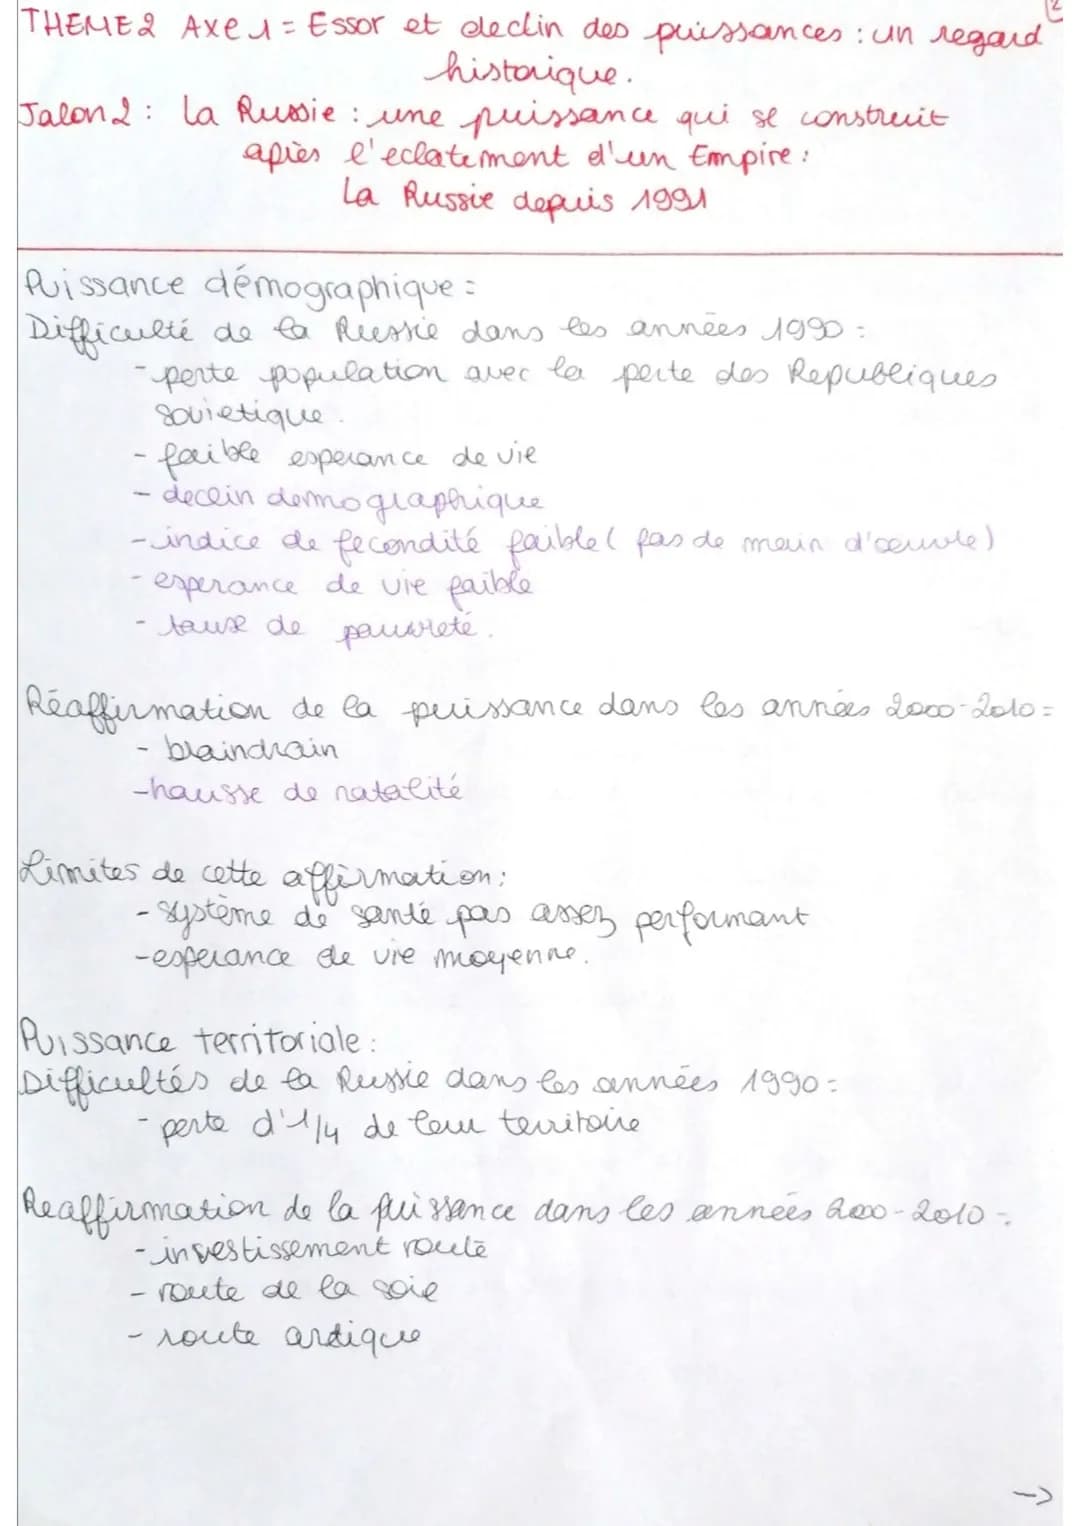 THEME2 Axe 1 = Essor et declin des puissances : un regard
historique.
Jalon 2 : La Russie : une puissance qui se construit
après l'eclatement d'un Empire :
La Russie depuis 1991
Puissance démographique :
Difficulté de la Russie dans les années 1990 :
- perte population avec la perte des Republiques
sovietique.
- faible esperance de vie
- declin demographique
- indice de fecondité faible ( pas de main d'œuvre)
- esperance de vie faible
- taux de pauvreté.
Réaffirmation de la puissance dans les années 2000-2010 =
- braindrain
- hausse de natalité
Limites de cette affirmation :
- système de santé pas assez performant
- esperance de vie moyenne.
Puissance territoriale :
Difficultés de la Russie dans les années 1990 :
- perte d'1/4 de leur territoire
Reaffirmation de la puissance dans les années 2000-2010 =
- investissement route
- route de la soie
- route arctique
->